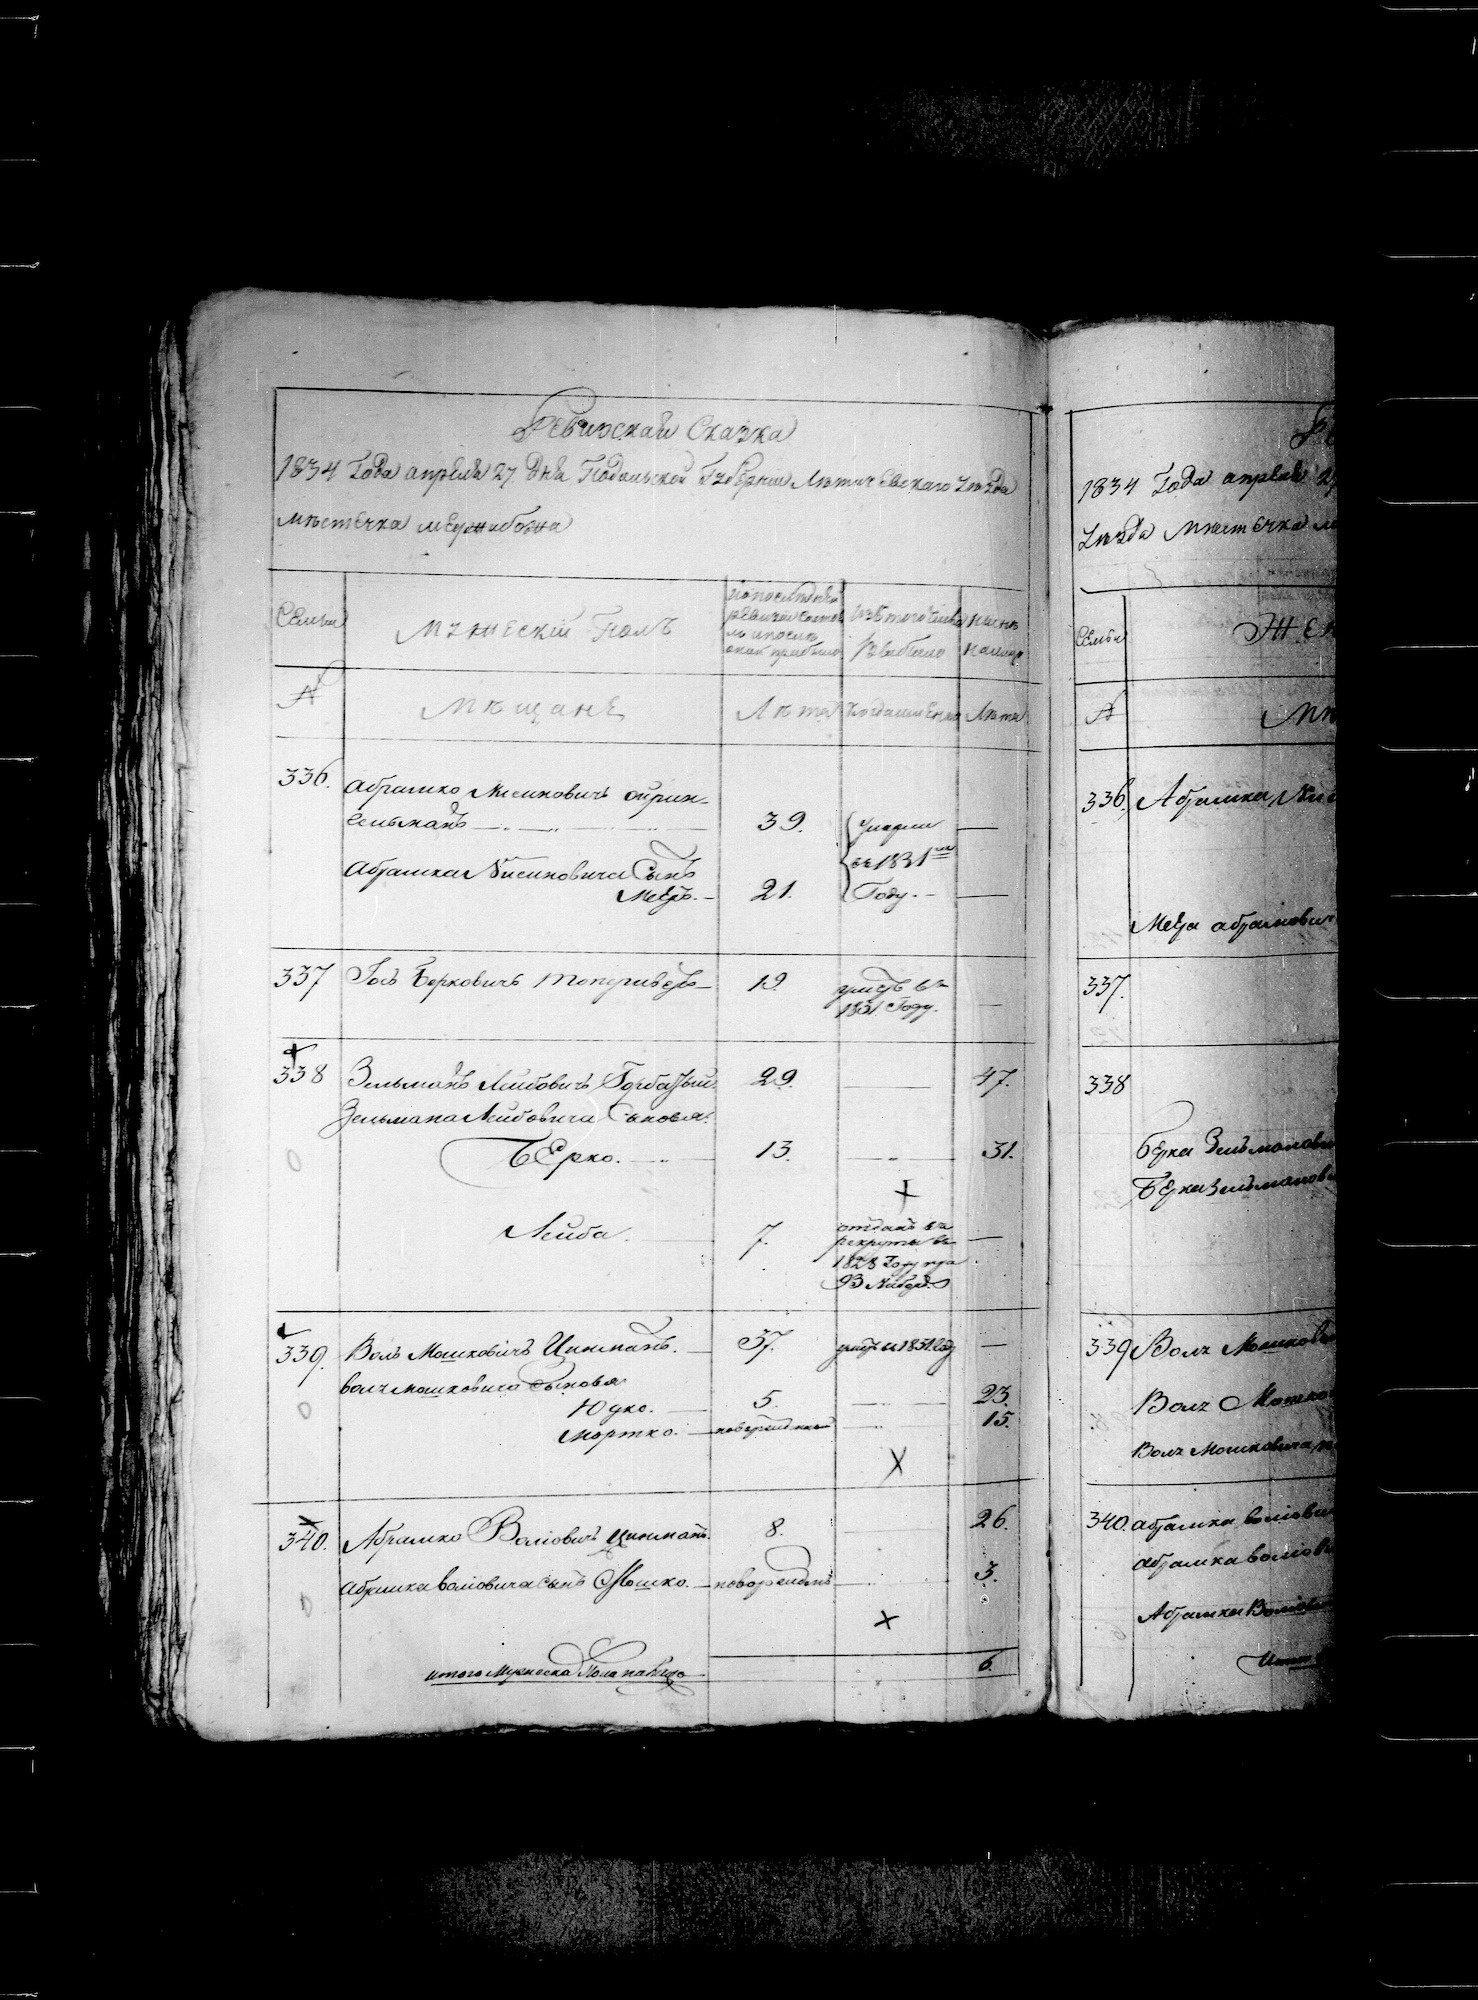 Ревизская Сказка
1834 Года апреля 27 дня Подольской Губерніи Лѣтичевскаго Уѣзда
мѣстечка межибожа
Семьи
мужескій Полъ
По последней
ревизіи состо
Изъ того числа
Выбыло
Нынѣ
на лицо
№
мѣщанѣ
Лѣта
Когда именно
Лѣта
336.
Абрамко Нисиновичъ
39.
Умерли
въ 1831 м
Абрамка Нисиновича Сынъ
Мееръ.
21.
Году.
337
Беркович
19.
умеръ въ
1831 Году.
338
Зельманъ Лейбовичъ Горбатый
29.
47.
Зельмана Лейбовича Сыновья:
Берко.
13.
31.
Лейба.
7.
отданъ въ
рекруты въ
1828 Году
339.
Волъ Мошковичъ Цинманъ.
37.
умеръ въ 1831 Году
волъ мошковича сыновья
Юдко.
5.
23.
Мортко.
новорожден
15.
340.
Абрамко Воліовичъ Цинманъ.
8.
26.
Абрамка воліовича сынъ Мошко.
новорожденъ
3.
итого Мужеска Пола на лицо
6.
1834 Года апреля 27
Уѣзда Мѣстечка
Семьи
№
336.
Абрамка
Меера абрамович
337.
338
Берка Зельманови
Берка Зельманов
339
Волъ Мошкови
Волъ Мошко
Волъ Мошковича
340.
абрамка воліови
абрамка воліов
Абрамка Воліов